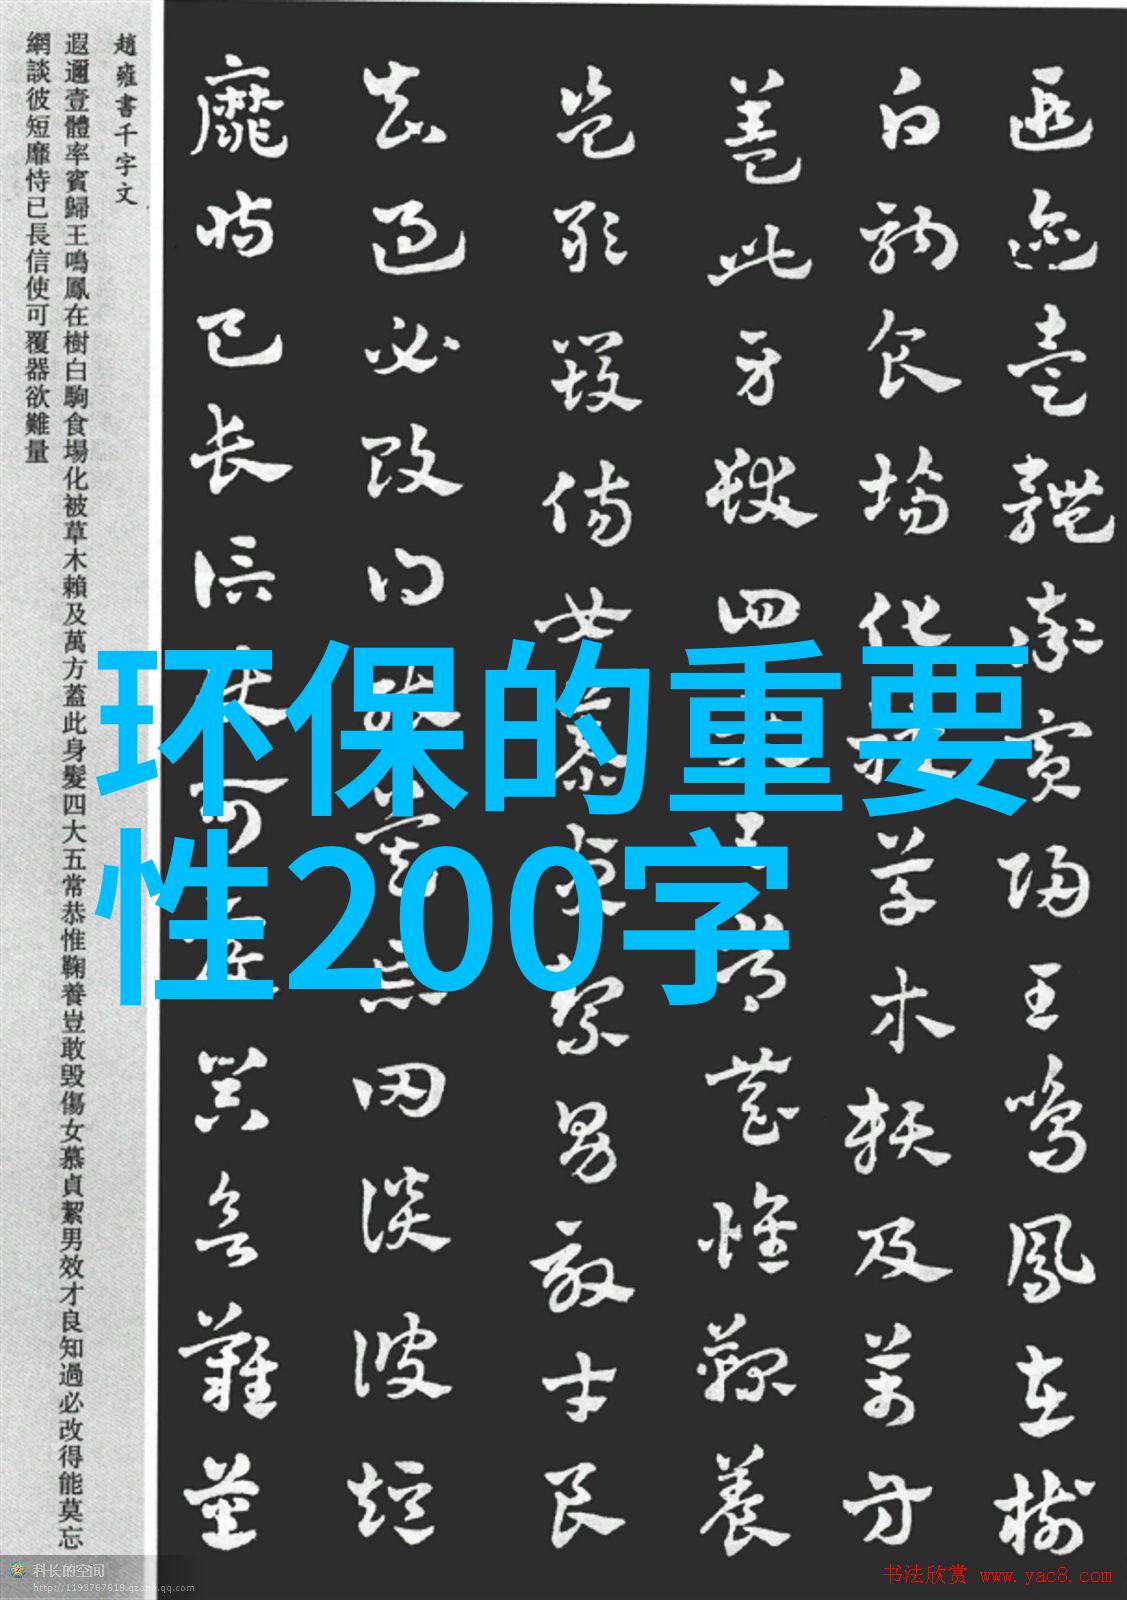 環保的重要
性200字
遐邇壹體率賓歸王鳴鳳在樹
白駒食場化被草木賴及萬方
蓋此身髮四大五常恭惟鞠養
豈敢毀傷女慕貞絜男效才良
知過必改得能莫忘罔談彼短
靡恃已長信使可覆器欲難量
趙雍書千字文
遐邇壹體率賓歸王鳴鳳在樹白駒食場化被草木賴及萬方蓋此身髮四大五常恭惟鞠養豈敢毀傷女慕貞絜男效才良知過必改得能莫忘
網談彼短靡恃已長信使可覆器欲難量
科长的空间
http://1193767618.qzone.qq.com
书法欣赏 www.yac8.com